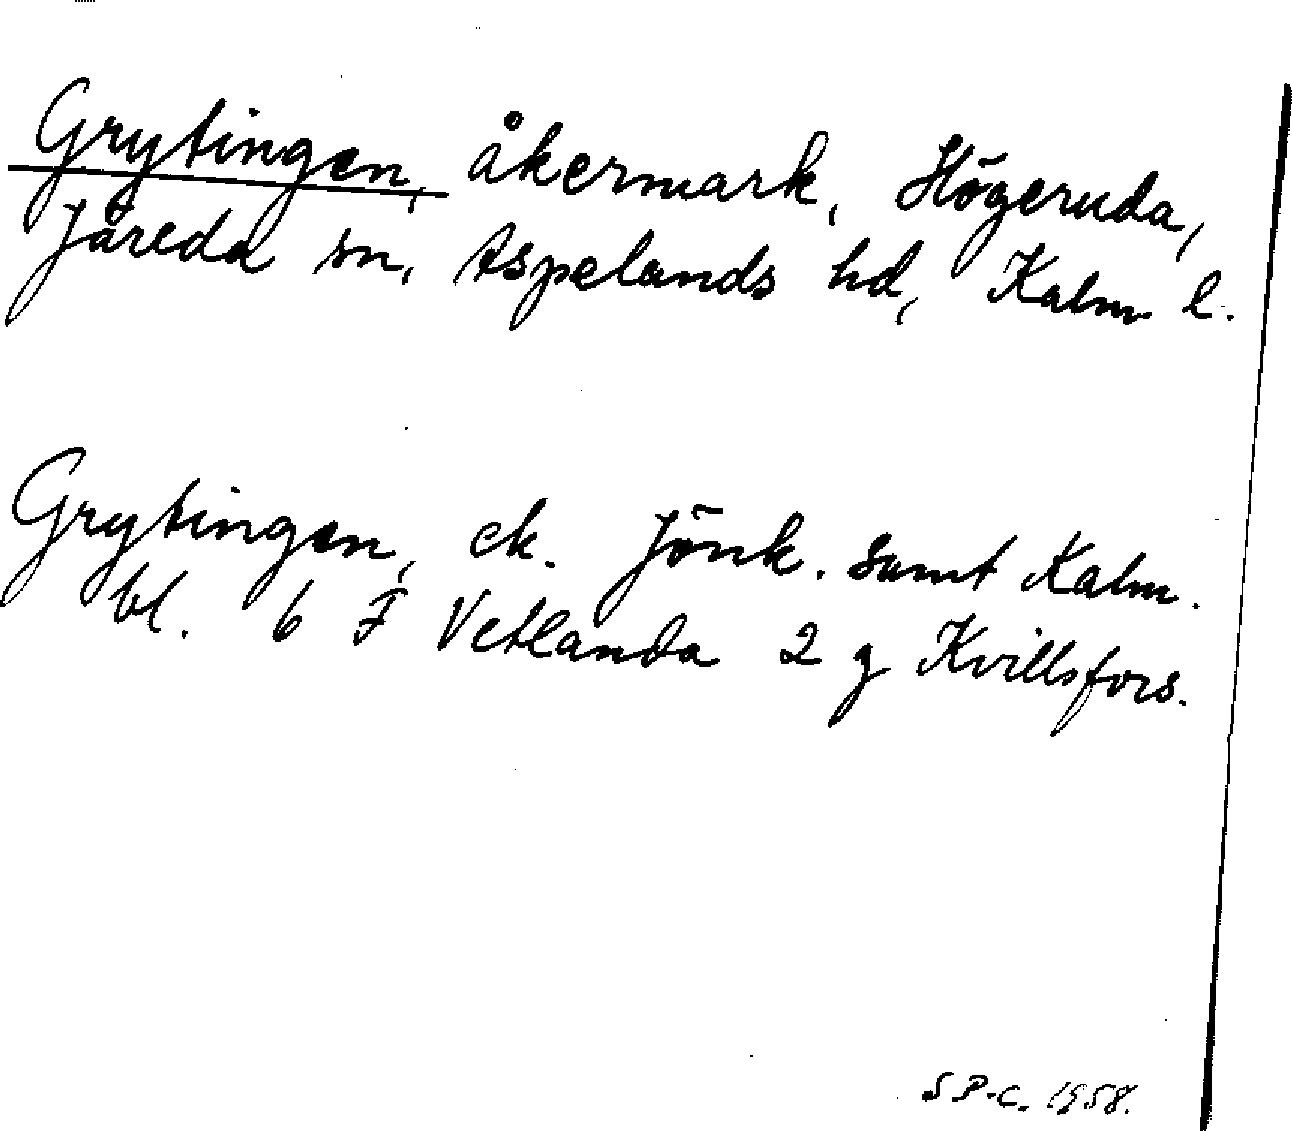 Grytingen, åkermark, Högeruda,
Järeda sn, Aspelands hd, Kalm l.
Grytingen, ek. Jönk. samt Kalm.
bl. 6 F Vetlanda 2 g Kvillsfors.
S P-C. 1958.